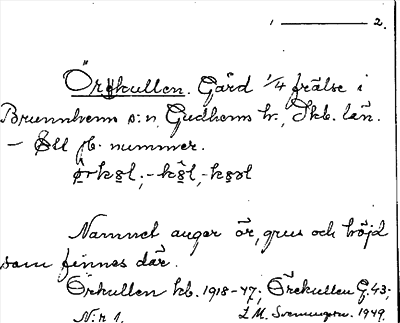 1 ——— 2.
Örekullen. Gård 1/4 frälse i
Brunnhems s:n, Gudhems hr., Skb. län.
– Ett jb. nummer.
Namnet anger ör, grus och höjd
som finnes där.
Örkullen kb. 1918-47; Örekullen G. 43;
N:r 1. L. M. Svenungsson. 1949.